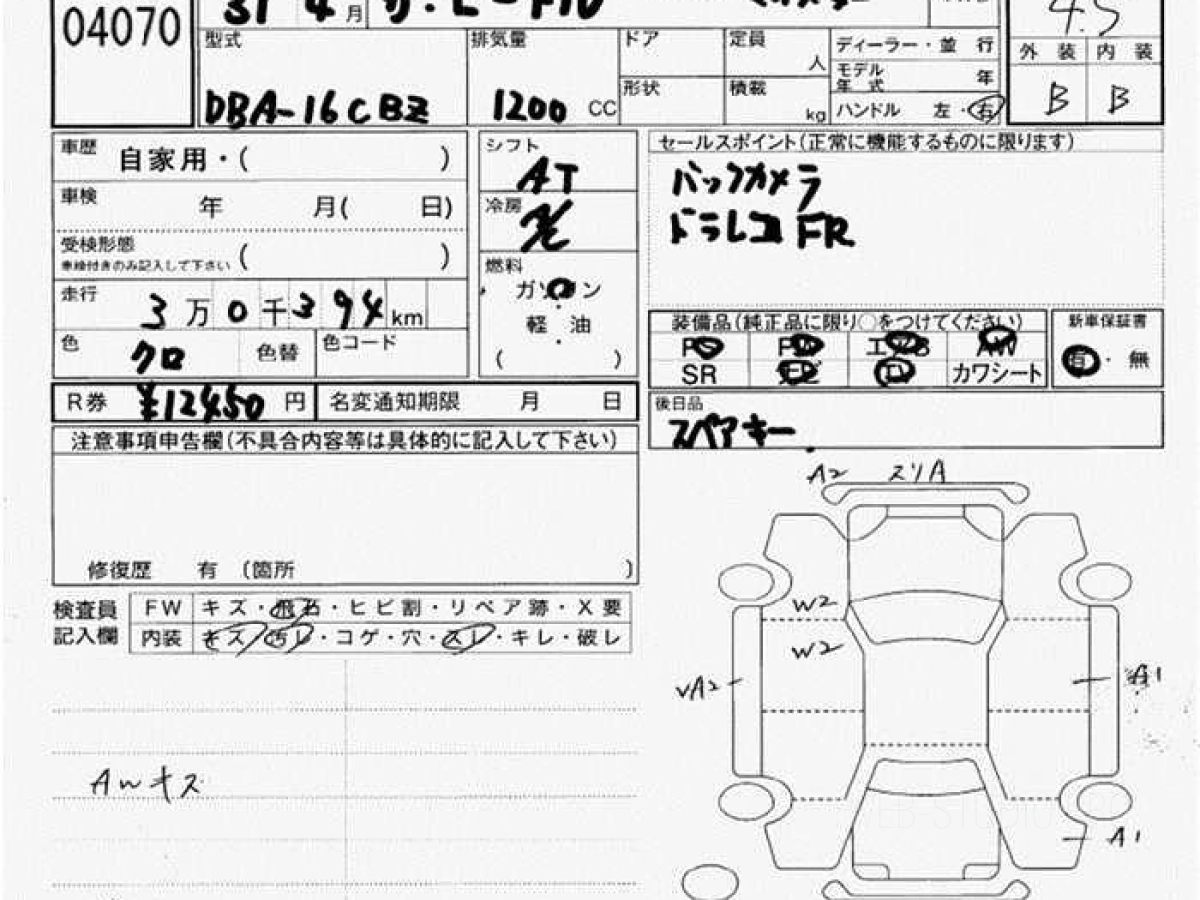 04070
31 4月 ザ・ビートル
4.5
型式
排気量
ドア
定員 人
ディーラー・並 行
モデル年式 年
外 装 内 装
DBA-16CBZ
1200 CC
形状
積載 kg
ハンドル 左・右
B B
車歴 自家用・( )
シフト AT
セールスポイント(正常に機能するものに限ります)
バックカメラ
ドラレコ FR
車検 年 月( 日)
冷房
受検形態 ( )
車検付きのみ記入して下さい
燃料 ガソリン
軽 油
( )
走行 3万0千394km
色 クロ 色替 色コード
装備品(純正品に限り○をつけてください)
PS PW エアB AW
SR ナビ TV カワシート
新車保証書
有・無
R券 ¥12450円 名変通知期限 月 日
後日品
スペアキー
注意事項申告欄(不具合内容等は具体的に記入して下さい)
修復歴 有 〔箇所 〕
検査員記入欄
FW キズ・飛石・ヒビ割・リペア跡・X要
内装 キズ・汚レ・コゲ・穴・スレ・キレ・破レ
A2 スリA
W2
W2
A1
AWキズ
A1